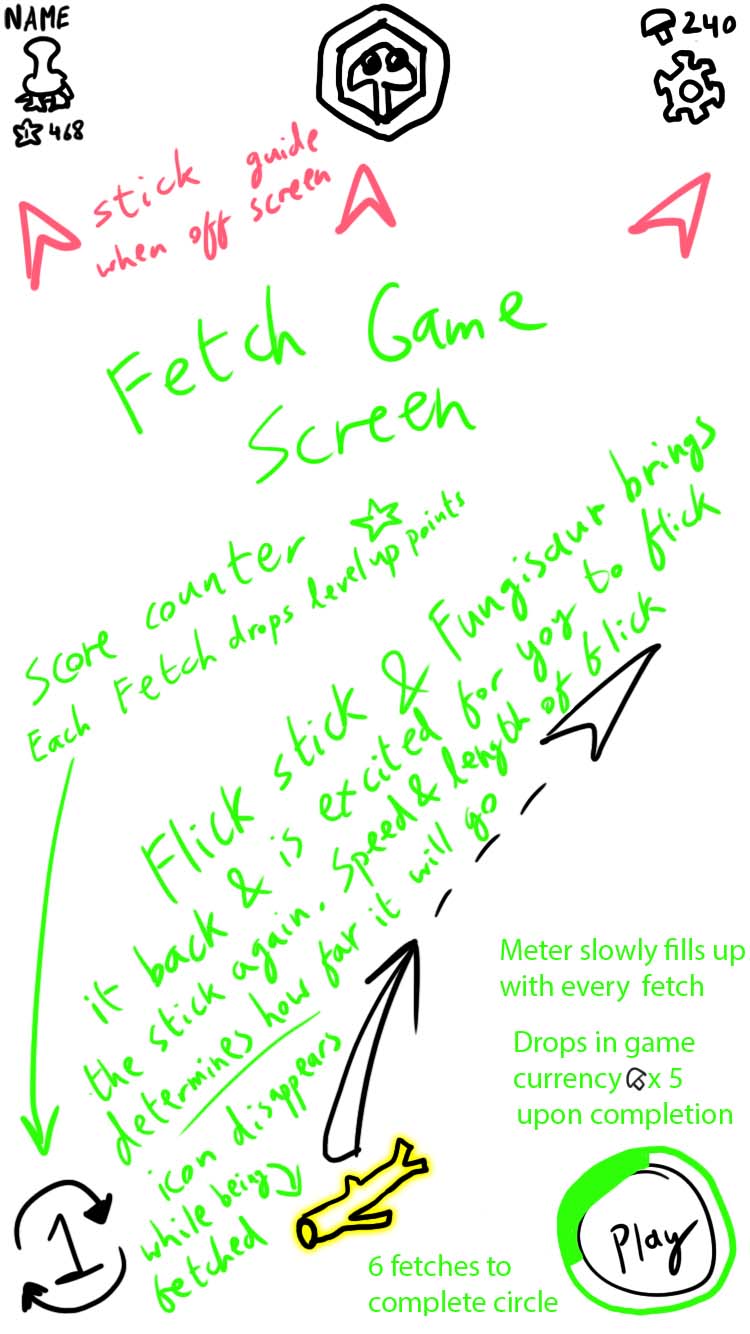 NAME
240
1 468
stick guide
when off screen
Fetch Game
Screen
Score counter
Each Fetch drops levelup points
Flick stick & Fungisaur brings
it back & is excited for you to flick
the stick again. Speed & length of flick
determines how far it will go
icon disappears
while being
fetched
Meter slowly fills up
with every fetch
Drops in game
currency x 5
upon completion
1
Play
6 fetches to
complete circle